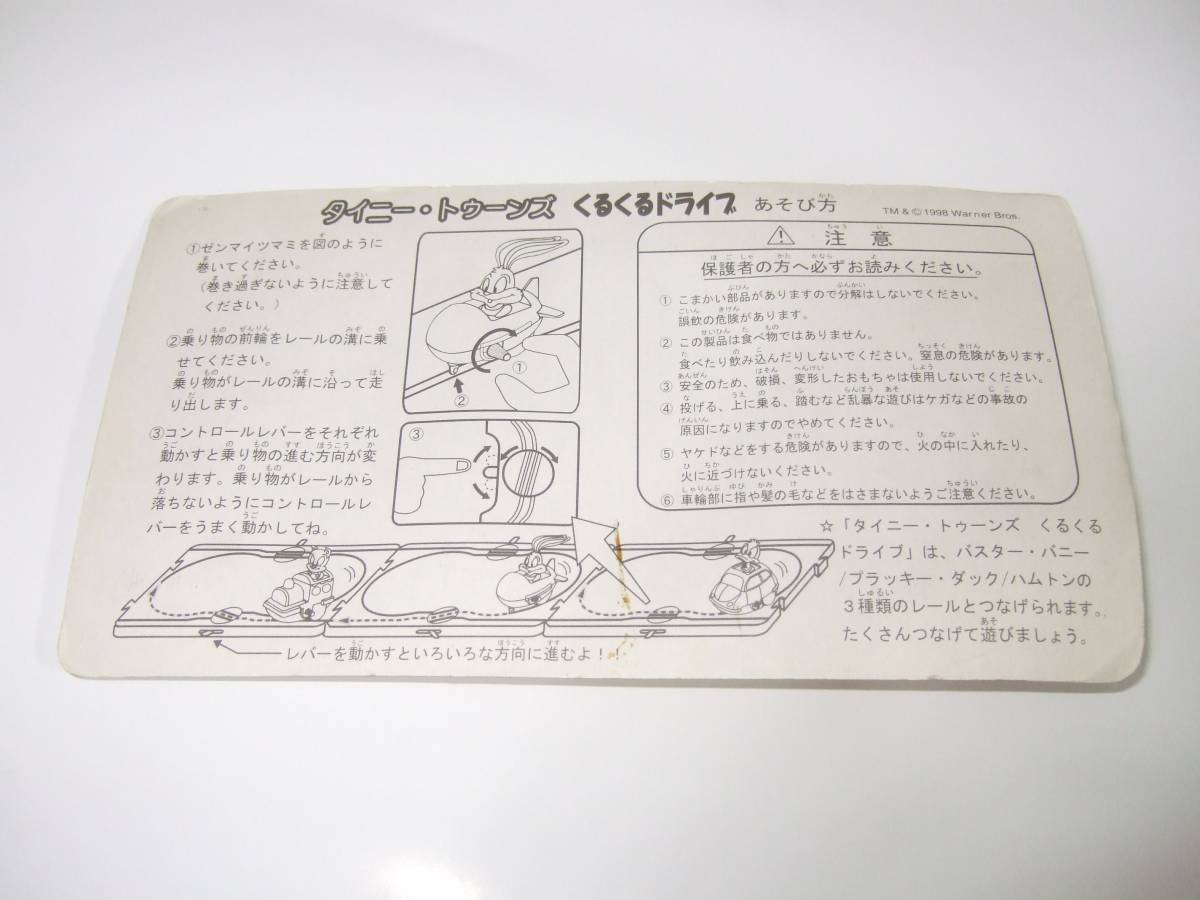 タイニー・トゥーンズ くるくるドライブ あそび方
TM & © 1998 Warner Bros.
①ゼンマイツマミを図のように
巻いてください。
(巻き過ぎないように注意して
ください。)
②乗り物の前輪をレールの溝に乗
せてください。
乗り物がレールの溝に沿って走
り出します。
③コントロールレバーをそれぞれ
動かすと乗り物の進む方向が変
わります。乗り物がレールから
落ちないようにコントロールレ
バーをうまく動かしてね。
①
②
③
レバーを動かすといろいろな方向に進むよ!!
注意
保護者の方へ必ずお読みください。
① こまかい部品がありますので分解はしないでください。
誤飲の危険があります。
② この製品は食べ物ではありません。
食べたり飲み込んだりしないでください。窒息の危険があります。
③ 安全のため、破損、変形したおもちゃは使用しないでください。
④ 投げる、上に乗る、踏むなど乱暴な遊びはケガなどの事故の
原因になりますのでやめてください。
⑤ ヤケドなどをする危険がありますので、火の中に入れたり、
火に近づけないください。
⑥ 車輪部に指や髪の毛などをはさまないようご注意ください。
☆「タイニー・トゥーンズ くるくる
ドライブ」は、バスター・バニー
/プラッキー・ダック/ハムトンの
3種類のレールとつなげられます。
たくさんつなげて遊びましょう。